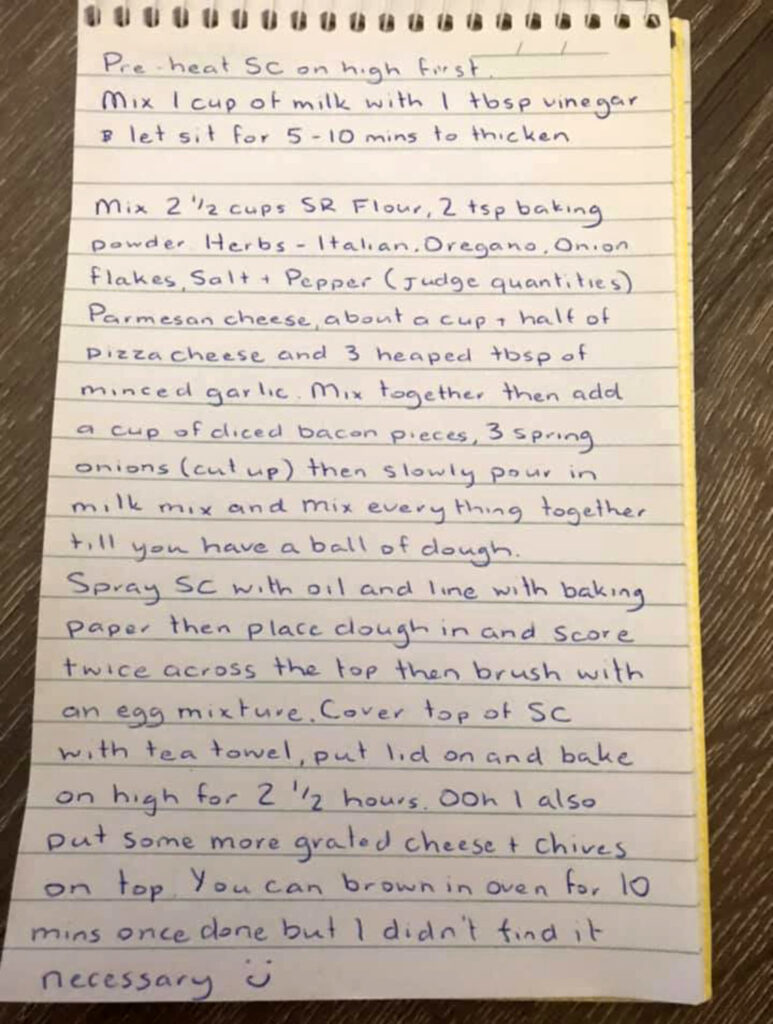 Pre-heat SC on high first.
Mix 1 cup of milk with 1 tbsp vinegar
& let sit for 5-10 mins to thicken
Mix 2 1/2 cups SR Flour, 2 tsp baking
powder. Herbs - Italian, Oregano, Onion
flakes, Salt + Pepper (judge quantities)
Parmesan cheese, about a cup + half of
pizza cheese and 3 heaped tbsp of
minced garlic. Mix together then add
a cup of diced bacon pieces, 3 spring
onions (cut up) then slowly pour in
milk mix and mix everything together
till you have a ball of dough.
Spray SC with oil and line with baking
paper then place dough in and score
twice across the top then brush with
an egg mixture. Cover top of SC
with tea towel, put lid on and bake
on high for 2 1/2 hours. Ooh I also
put some more grated cheese + chives
on top. You can brown in oven for 10
mins once done but I didn't find it
necessary :)